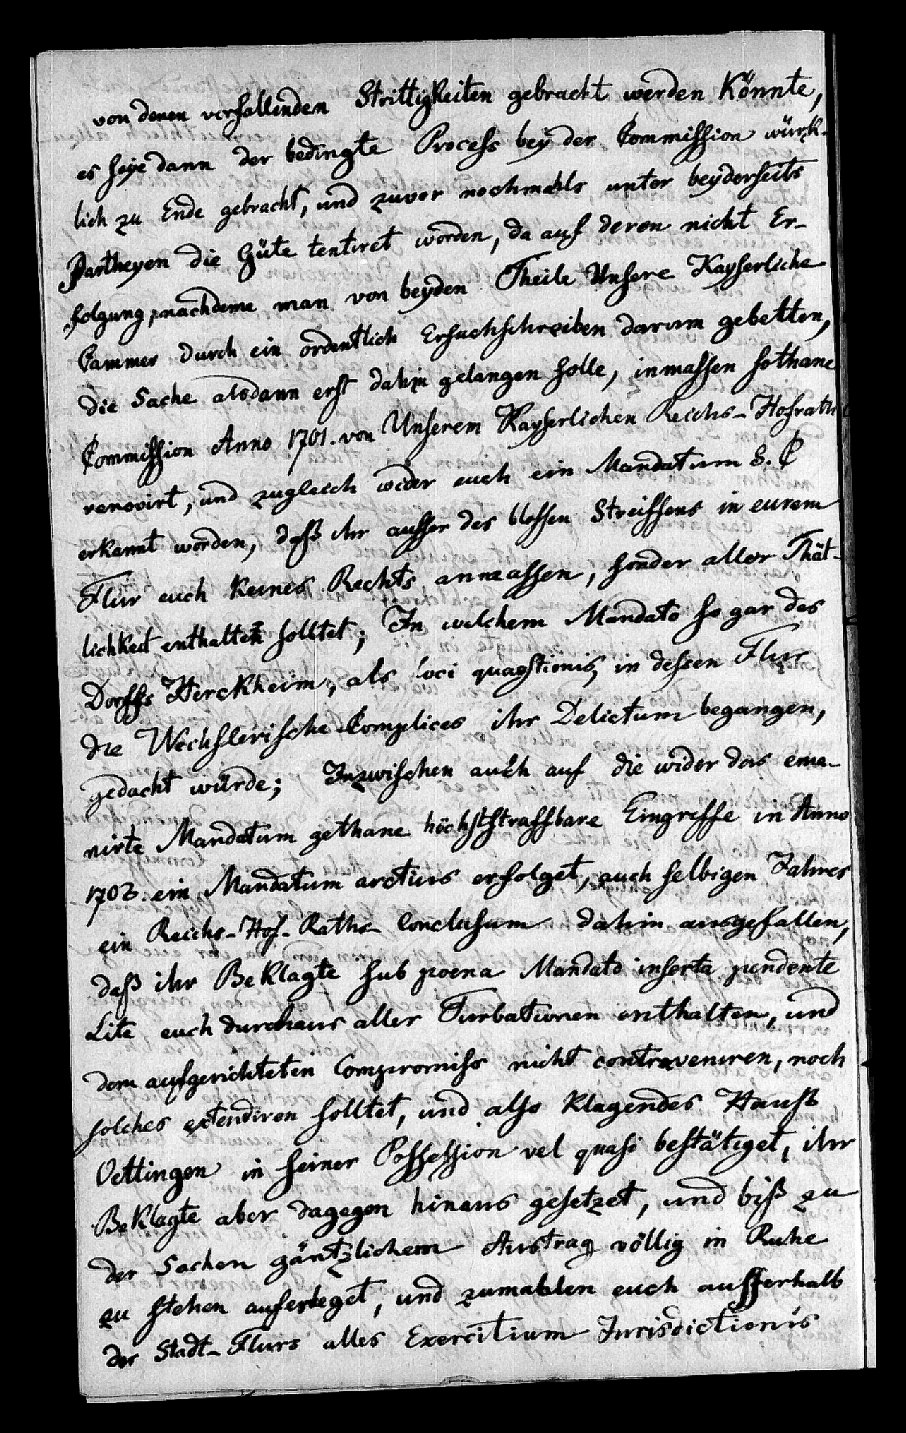 von denen vorfallenden Strittigkeiten gebracht werden könnte,
es seye dann der bedingte Process bey der Commission würk-
lich zu Ende gebracht, und zuvor nochmahls unter beyderseits
Partheyen die Güte tentiret worden, da auf deren nicht Er-
folgung, nachdeme man von beyden Theile Unsere Kayserliche
Cammer durch ein ordentlich Ersuchschreiben darum gebetten,
die Sache alsdann erst dahin gelangen solle, inmassen sothane
Commission Anno 1701. von Unserem Kayserlichen Reichs-Hofrath
renovirt, und zugleich wider euch ein Mandatum S. C
erkannt worden, daß ihr ausser des blossen Streiffens in eurem
Flur euch keines Rechts anmassen, sonder aller Thät-
lichkeit enthalten solltet; In welchem Mandato so gar des
Dorffs Herckheim, als loci quaestionis, in dessen Flur
die Wechslerische Complices ihr Delictum begangen,
gedacht würde; Inzwischen auch auf die wider das ema-
nirte Mandatum gethane höchststraffbare Eingriffe in Anno
1702. ein Mandatum arctius erfolget, auch selbigen Jahres
ein Reichs-Hof-Raths-Conclusum dahin ausgefallen,
daß ihr Beklagte sub poena Mandato inserta pendente
Lite euch durchaus aller Turbationen enthalten, und
dem aufgerichteten Compromiss nicht contraveniren, noch
solches extendiren solltet, und also klagendes Hauß
Oettingen in seiner Possession vel quasi bestätiget, ihr
Beklagte aber dagegen hinaus gesetzet, und biß zu
der Sachen gäntzlichem Austrag völlig in Ruhe
zu stehen auferleget, und zumahlen euch ausserhalb
der Stadt-Flurs alles Exercitium Jurisdictionis